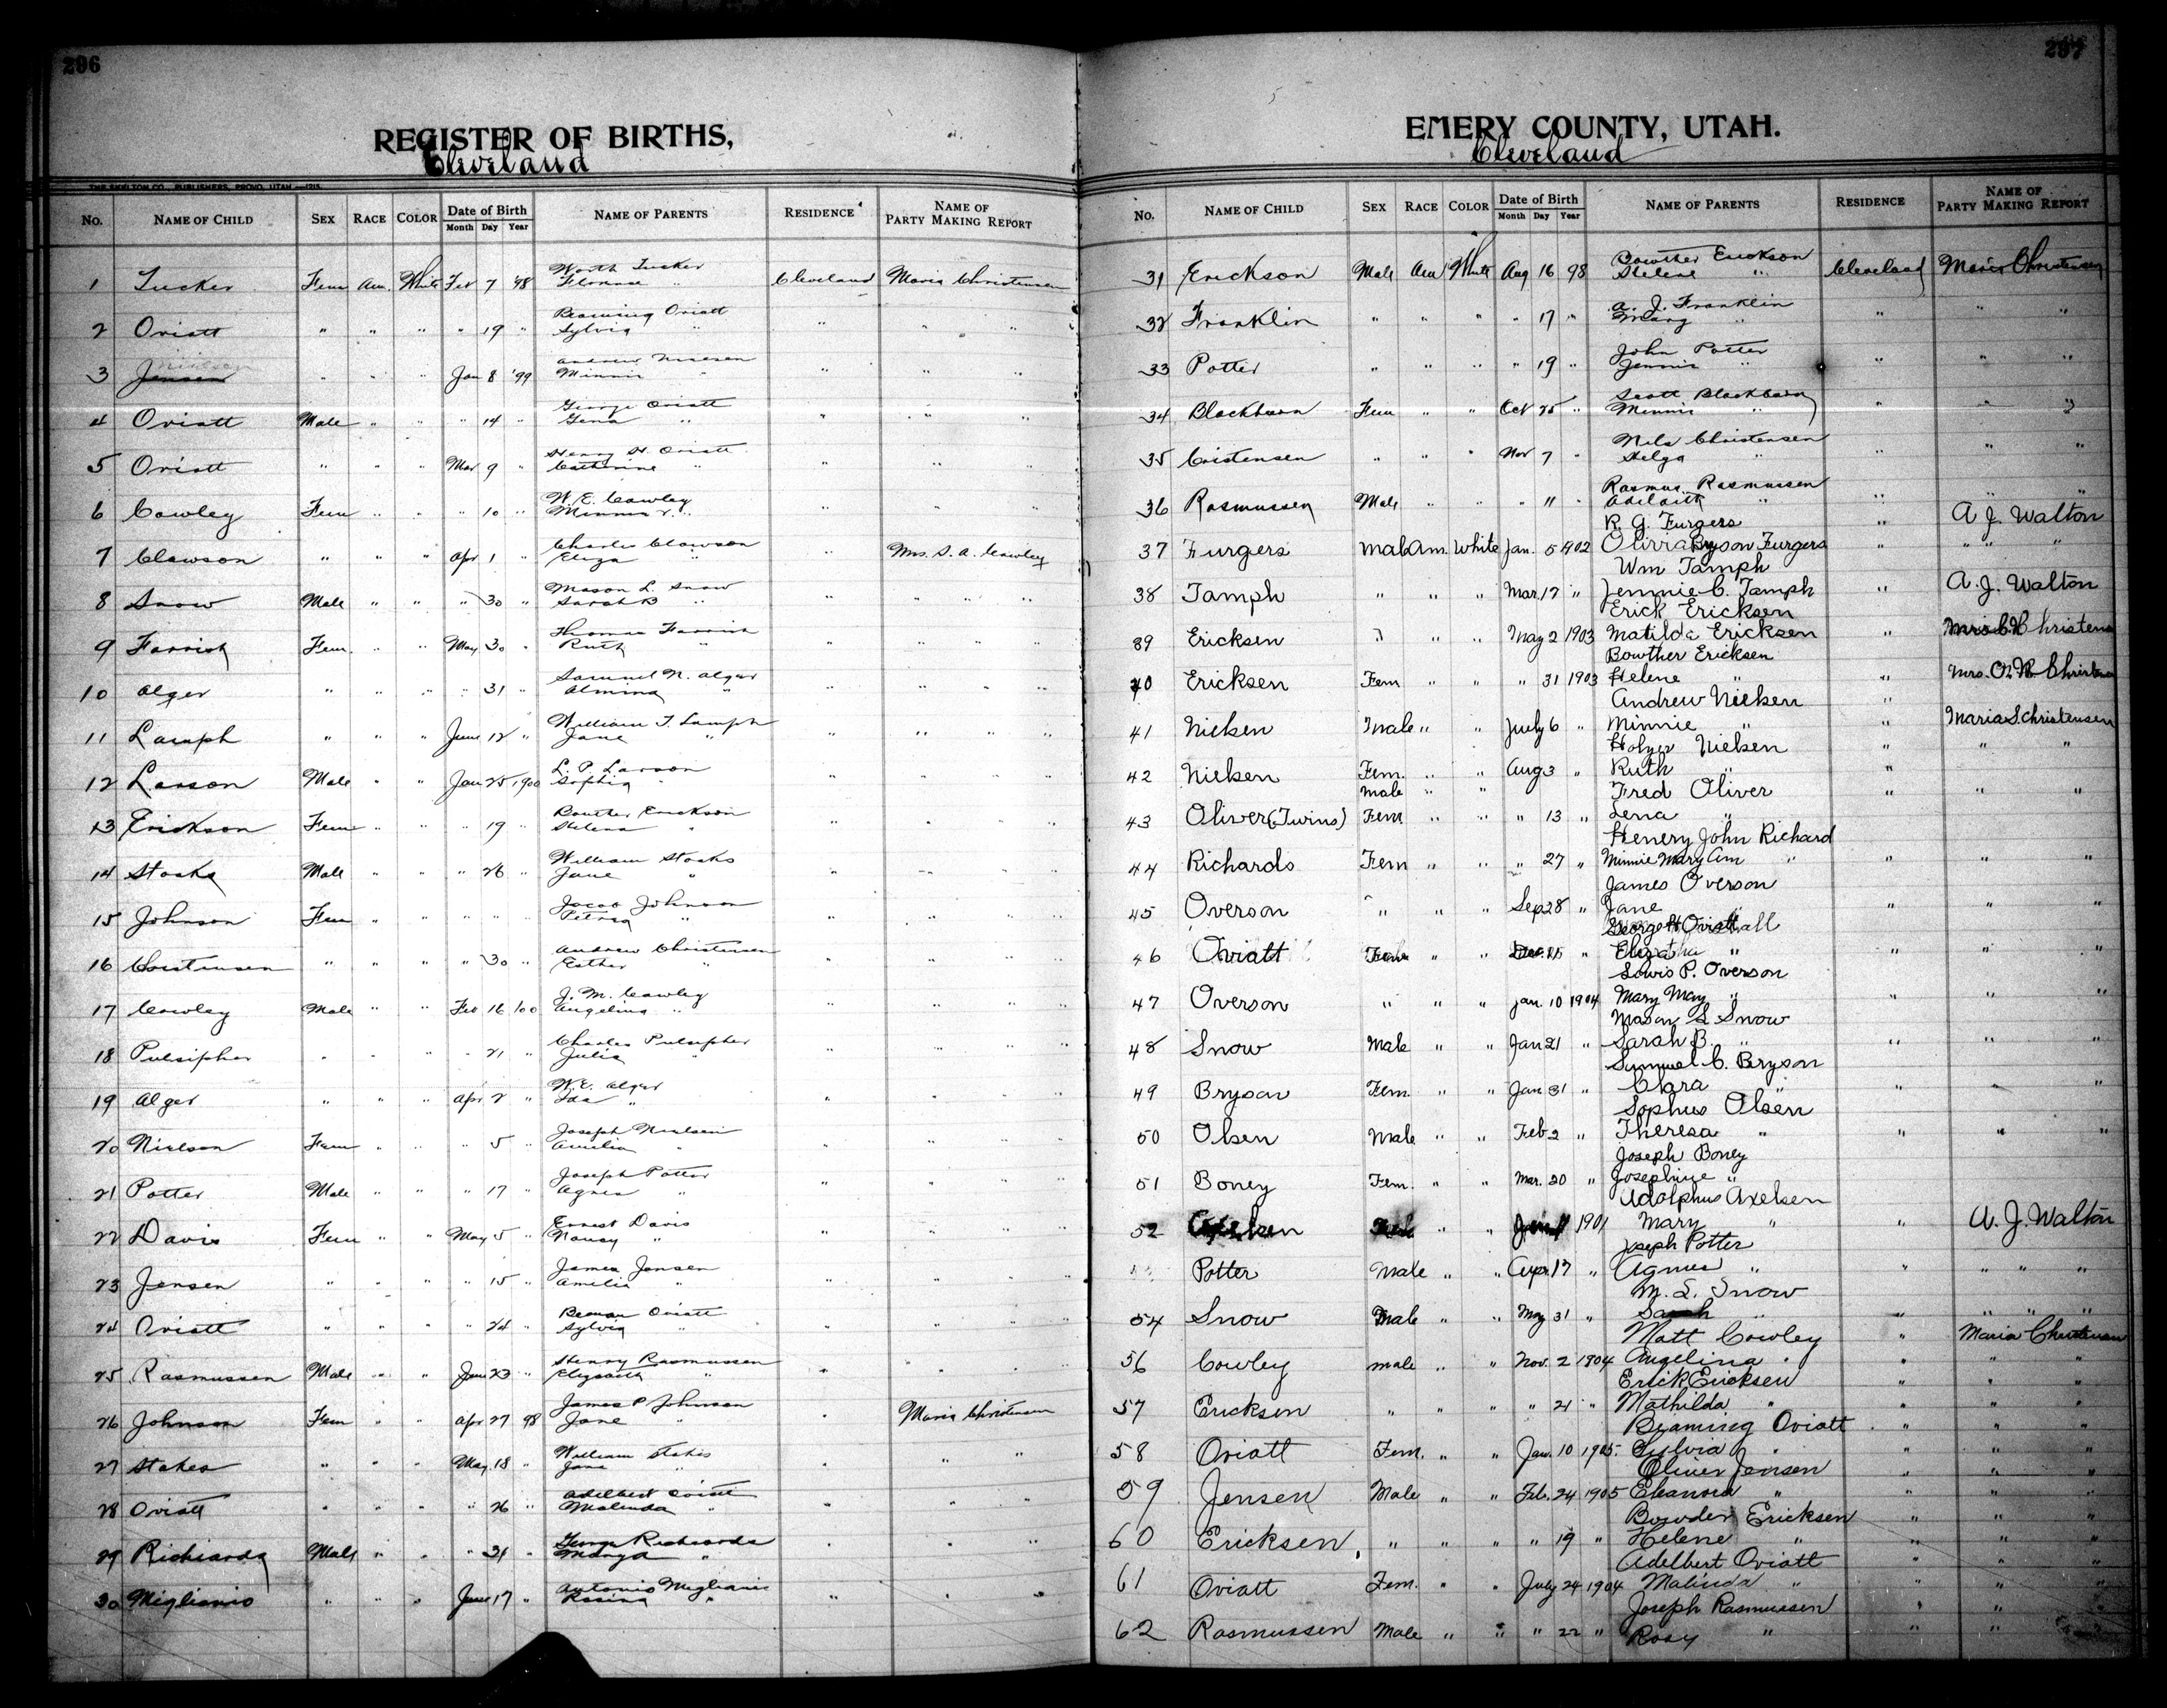 296
REGISTER OF BIRTHS,
Cleveland
THE SKELTON CO., PUBLISHERS, PROVO, UTAH.—1215
No. NAME OF CHILD SEX RACE COLOR Date of Birth Month Day Year NAME OF PARENTS RESIDENCE NAME OF PARTY MAKING REPORT
Worth Tucker
1 Tucker Fem Am. White Feb 7 '98 Florence " Cleveland Maria Christensen
Beaming Oviatt
2 Oviatt " " " " 19 " Sylvia " " " "
Andrew Nielsen
3 Jensen " " " Jan 8 '99 Minnie " " " "
George Oviatt
4 Oviatt Male " " " 14 " Gena " " " "
Henry H. Oviatt
5 Oviatt " " " Mar 9 " Catherine " " " "
W. E. Cowley
6 Cowley Fem " " " 10 " Minnie " " " "
Charles Clawson
7 Clawson " " " Apr 1 " Eliza " " Mrs. S. A. Cowley
Mason L. Snow
8 Snow Male " " " 30 " Sarah B " " " " "
Thomas Farrish
9 Farrish Fem. " " May 30 " Ruth " " " " "
Samuel N. Alger
10 Alger " " " " 31 " Almina " " " " "
William T. Lamph
11 Lamph " " " June 12 " Jane " " " " "
L. P. Larson
12 Larson Male " " Jan 25 1900 Sophia " " " " "
Bouther Erickson
13 Erickson Fem " " " 19 " Helena " " " " "
William Stocks
14 Stocks Male " " " 26 " Jane " " " " "
Jacob Johnson
15 Johnson Fem " " " " " Petrea " " " " "
Andrew Christensen
16 Christensen " " " " 30 " Esther " " " " "
J. M. Cowley
17 Cowley Male " " Feb 16 100 Angelina " " " " "
Charles Pulsipher
18 Pulsipher " " " " 21 " Julia " " " " "
W. E. Alger
19 Alger " " " Apr 2 " Ida " " " " "
Joseph Nielsen
20 Nielson Fem " " " 5 " Amelia " " " " "
Joseph Potter
21 Potter Male " " " 17 " Agnes " " " " "
Ernest Davis
22 Davis Fem " " May 5 " Nancy " " " " "
James Jensen
23 Jensen " " " " 15 " Amelia " " " " "
Beaman Oviatt
24 Oviatt " " " " 24 " Sylvia " " " " "
Henry Rasmussen
25 Rasmussen Male " " June 23 " Elizabeth " " " " "
James P Johnson
26 Johnson Fem " " Apr 27 98 Jane " " Maria Christensen
William Stakes
27 Stakes " " " May 18 " Jane " " " "
Adelbert Oviatt
28 Oviatt " " " " 26 " Malinda " " " "
George Richards
29 Richards Male " " " 31 " " " " "
Antonio Miglianio
30 Miglianio " " " June 17 " Rosina " " " "
297
EMERY COUNTY, UTAH.
Cleveland
No. NAME OF CHILD SEX RACE COLOR Date of Birth Month Day Year NAME OF PARENTS RESIDENCE NAME OF PARTY MAKING REPORT
Bowther Erickson
31 Erickson Male Am White Aug 16 98 Helene " Cleveland Maria Christensen
A. J. Franklin
32 Franklin " " " " 17 " Mary " " " "
John Potter
33 Potter " " " " 19 " Jennie " " " "
Scott Blackburn
34 Blackburn Fem " " Oct 25 " Minnie " " " "
Nels Christensen
35 Cristensen " " " Nov 7 " Helga " " " "
Rasmus Rasmussen
36 Rasmussen Male " " " 11 " Adelaith " " " "
R. G. Furgers " A. J. Walton
37 Furgers Male Am. White Jan. 5 1902 Olivia Bryson Furgers " " " "
Wm Tamph
38 Tamph " " " Mar. 12 " Jemmie C. Tamph " A. J. Walton
Erick Ericksen
39 Ericksen " " " May 2 1903 Matilda Ericksen " Mrs C. H Christens
Bowther Ericksen
40 Ericksen Fem " " " 31 1903 Helene " " Mrs. Christen
Andrew Nielsen "
41 Nielsen Male " " July 6 " Minnie " " Maria S. Christensen
Holger Nielsen " " "
42 Nielsen Fem. " " Aug 3 " Ruth " "
Male " " Fred Oliver " " "
43 Oliver (Twins) Fem " " " 13 " Lena "
Henery John Richard
44 Richards Fem " " " 27 " Minnie Mary Am " " " "
James Overson
45 Overson " " " Sep 28 " Jane " " " "
George H Oviatt
46 Oviatt Fem " " Dec. 25 " " " " "
Lowis P. Overson
47 Overson " " " Jan. 10 1904 Mary May " " " "
Mason L Snow
48 Snow Male " " Jan 21 " Sarah B. " " " "
Sammuel C. Bryson
49 Bryson Fem. " " Jan 31 " Clara " " " "
Sophus Olsen
50 Olsen Male " " Feb 2 " Theresa " " " "
Joseph Boney
51 Boney Fem. " " Mar. 20 " Josephine "
Adolphus Axelsen
52 " " 1901 Mary " " A. J. Walton
Joseph Potter
Potter Male " " Apr 17 " Agnes " " " " "
M. L. Snow
54 Snow Male " " May 31 " Sarah " " " "
Matt Cowley " Maria Christensen
56 Cowley male " " Nov. 2 1904 Angelina " " " "
Erick Ericksen " " "
57 Ericksen " " " " 21 " Mathilda " " " "
Biaming Oviatt " " "
58 Oviatt Fem. " " Jan. 10 1905 Sylvia " " " "
Oliver Jensen " " "
59 Jensen Male " " Feb. 24 1905 Eleanora " " " "
Bowder Ericksen " " "
60 Ericksen " " " " 19 " Helene " " " "
Adelbert Oviatt " " "
61 Oviatt Fem. " " July 24 1904 Malinda " " " "
Joseph Rasmussen " " "
62 Rasmussen Male " " " 22 " Rosy " " "